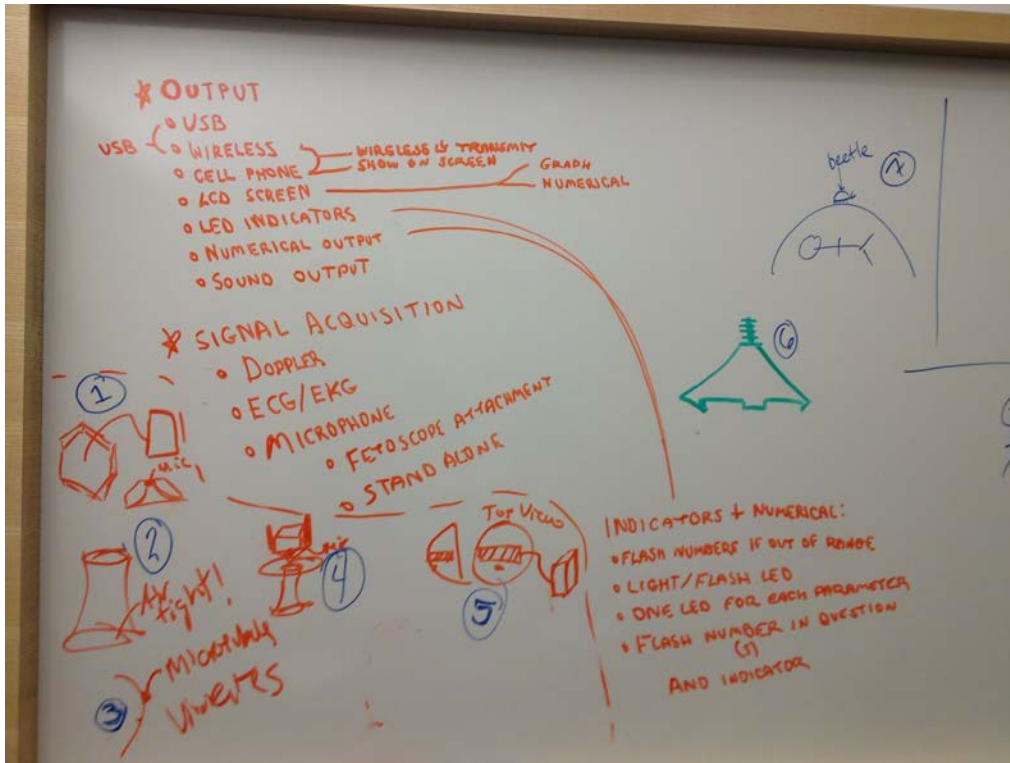 * OUTPUT
• USB
USB
• WIRELESS
WIRELESS & TRANSMIT
• CELL PHONE
SHOW ON SCREEN
GRAPH
• LCD SCREEN
NUMERICAL
• LED INDICATORS
• NUMERICAL OUTPUT
• SOUND OUTPUT
beetle
* SIGNAL ACQUISITION
• DOPPLER
• ECG/EKG
• MICROPHONE
• FETOSCOPE ATTACHMENT
• STAND ALONE
6
1
MIC
2
Air
tight!
3
MICROPHONE
4
mic
TOP VIEW
5
INDICATORS + NUMERICAL:
• FLASH NUMBERS IF OUT OF RANGE
• LIGHT/FLASH LED
• ONE LED FOR EACH PARAMETER
• FLASH NUMBER IN QUESTION
(S)
AND INDICATOR